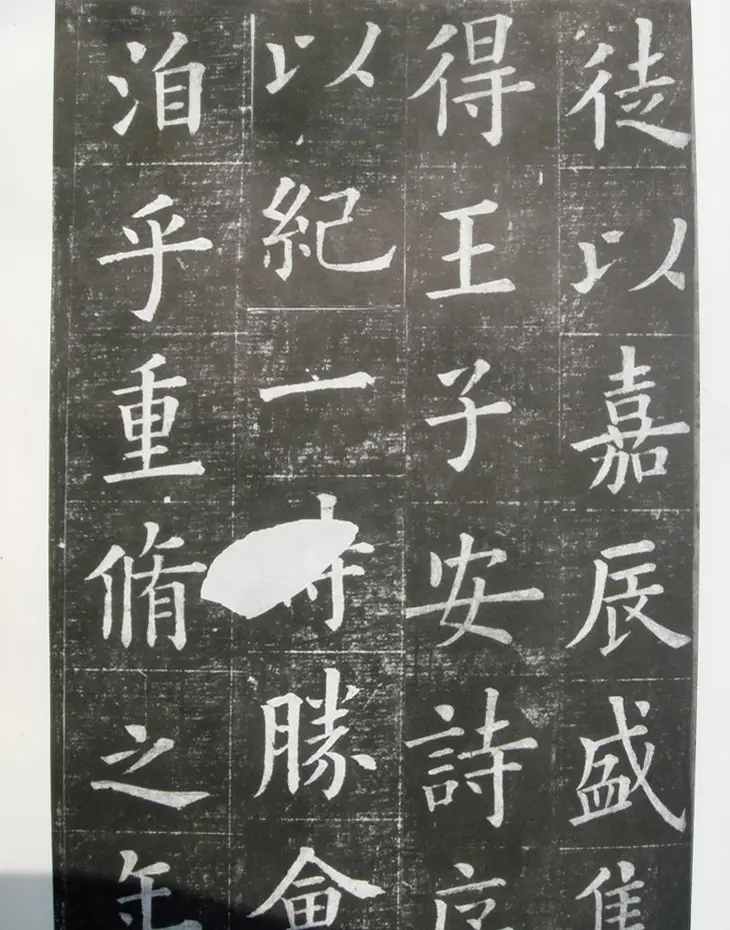 徒以嘉辰盛
得王子安詩序
以紀一勝會
洎乎重脩之年